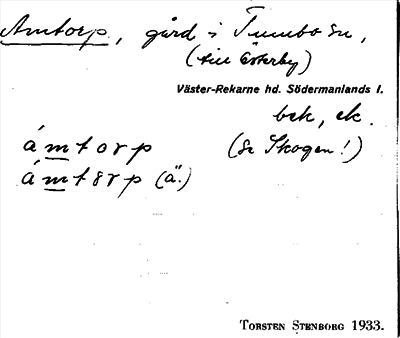 Åmtorp, gård i Tumbo sn,
(till Österby)
Väster-Rekarne hd. Södermanlands l.
bek, ek.
ámtorp (Se Skogen!)
ámtɜrp (ä.)
TORSTEN STENBORG 1933.